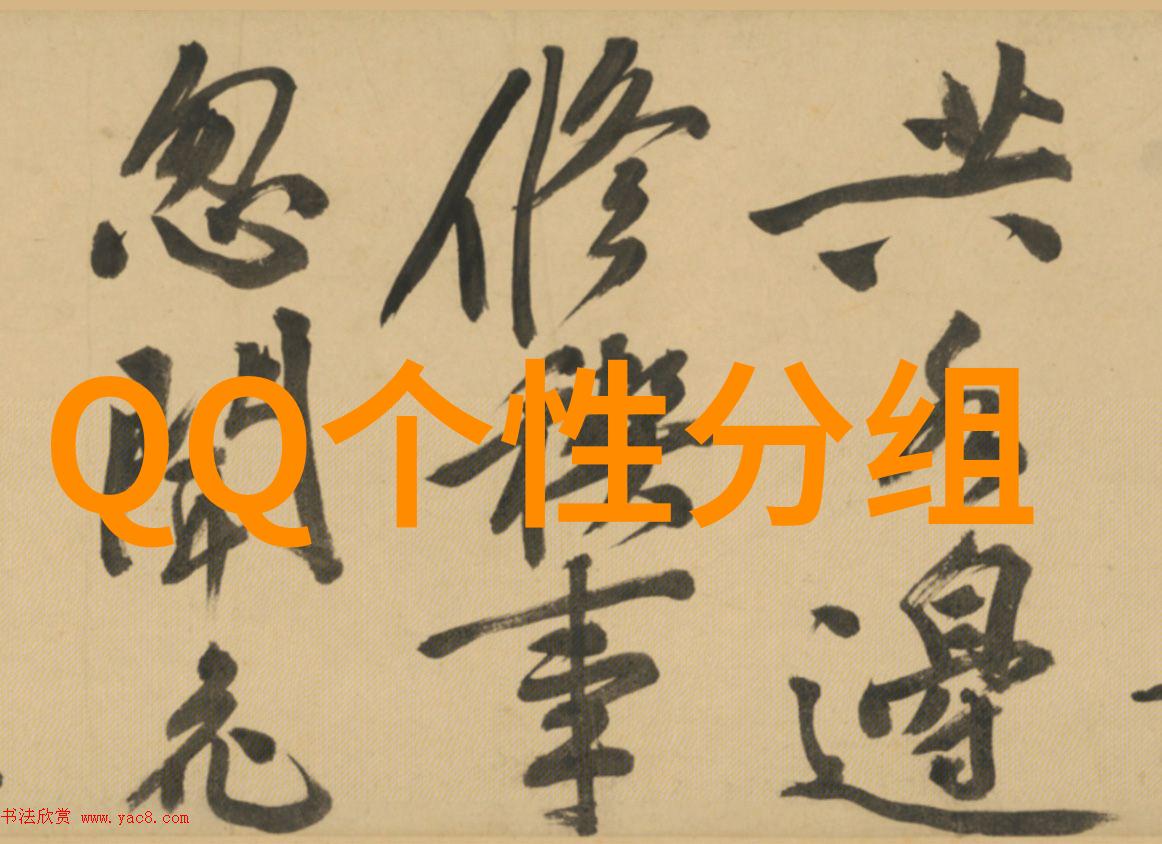 共邊
修禊事
忽聞
QQ个性分组
书法欣赏 www.yac8.com